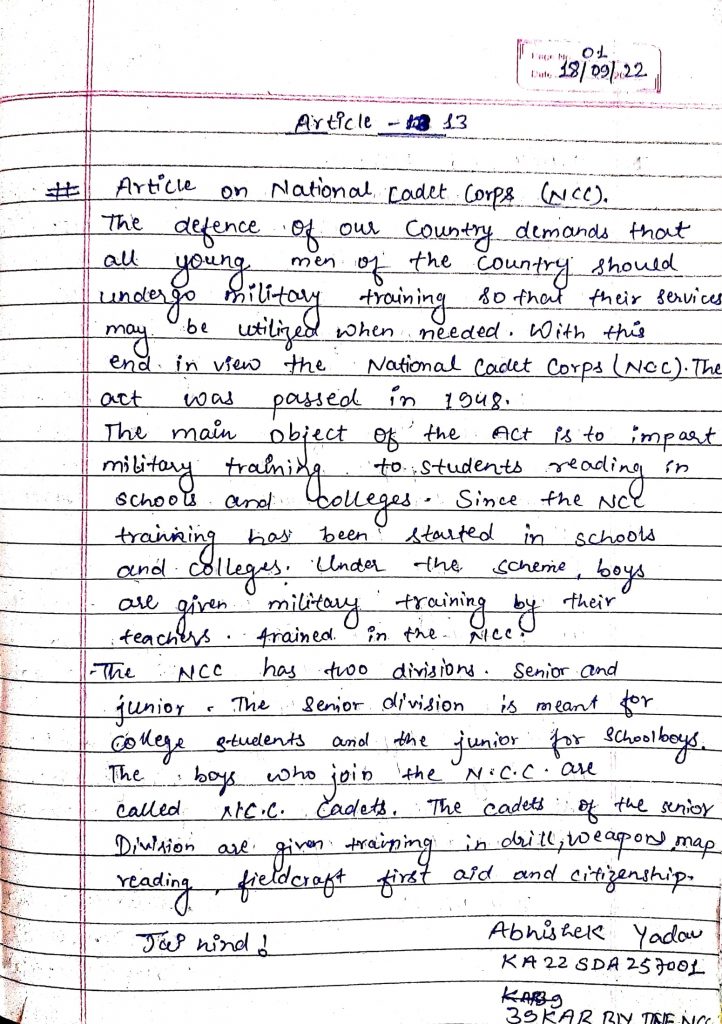 Page No. 01
Date 18/09/22
Article - 13
# Article on National Cadet Corps (NCC).
The defence of our Country demands that
all young men of the country should
undergo military training so that their services
may be utilized when needed. With this
end in view the National Cadet Corps (NCC). The
act was passed in 1948.
The main object of the Act is to impart
military training to students reading in
schools and Colleges. Since the NCC
training has been started in schools
and colleges. Under the scheme, boys
are given military training by their
teachers. trained in the NCC.
- The NCC has two divisions. Senior and
junior. The Senior division is meant for
College students and the junior for Schoolboys.
The boys who join the N.C.C. are
called N.C.C. Cadets. The cadets of the senior
Division are given training in drill, weapons, map
reading, fieldcraft first aid and citizenship.
Jai hind!
Abhishek Yadav
KA 22 SDA 257001
39 KAR BN NCC